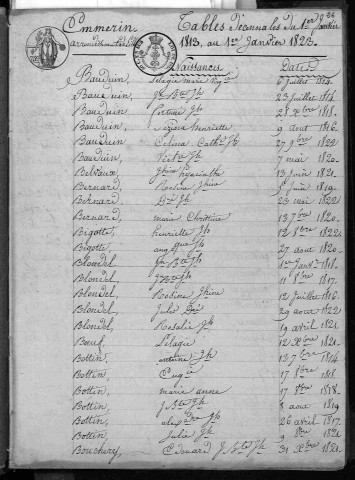 Emmerin
arrondissement de Lille
Tables Décennales du 1er Janvier
1813, au 1er Janvier 1823.
Naissances Dates
Bauduin, Pelagie marie 6 juillet 1824.
Bauduin, Jn Bte Jh 23 juillet 1814.
Bauduin, Fortuné Jh 25 xbre 1818.
Bauduin, Henriette 9 aout 1816.
Bauduin, Celina Cathne Jh 27 9bre 1822
Bauduin, Victor 7 mai 1820.
Belvaux, Jhine hyacinthe 13 juin 1821.
Bernard, Rosine Jhine juin 1819.
Bernard, Jh 23 mai 1822.
Bernard, marie Christine 13 7bre 1820.
Bigotte, henriette Jh 12 8bre 1822
Bigotte, Jh 27 aout 1820.
Blondel, Jn Bte Jh 1er Janvr 1818.
Blondel, Jn Bte Jh 11 8bre 1817.
Blondel, Rosine Jhine 12 juillet 1816.
Blondel, Jules 29 aout 1822
Blondel, Rosalie Jh 19 avril 1821.
Bœuf, Pelagie 12 xbre 1821.
Bottin, antoine Jh 13 7bre 1814.
Bottin, Eugne 17 1818.
Bottin, marie anne 17 8bre 1818.
Bottin, J Bte Jh 8 aout 1819
Bottin, alexdre Jh 26 avril 1817.
Bottin, Julie Jh 9 8bre 1821.
Bouchery, Edouard J Bte Jh 31 xbre 1821.